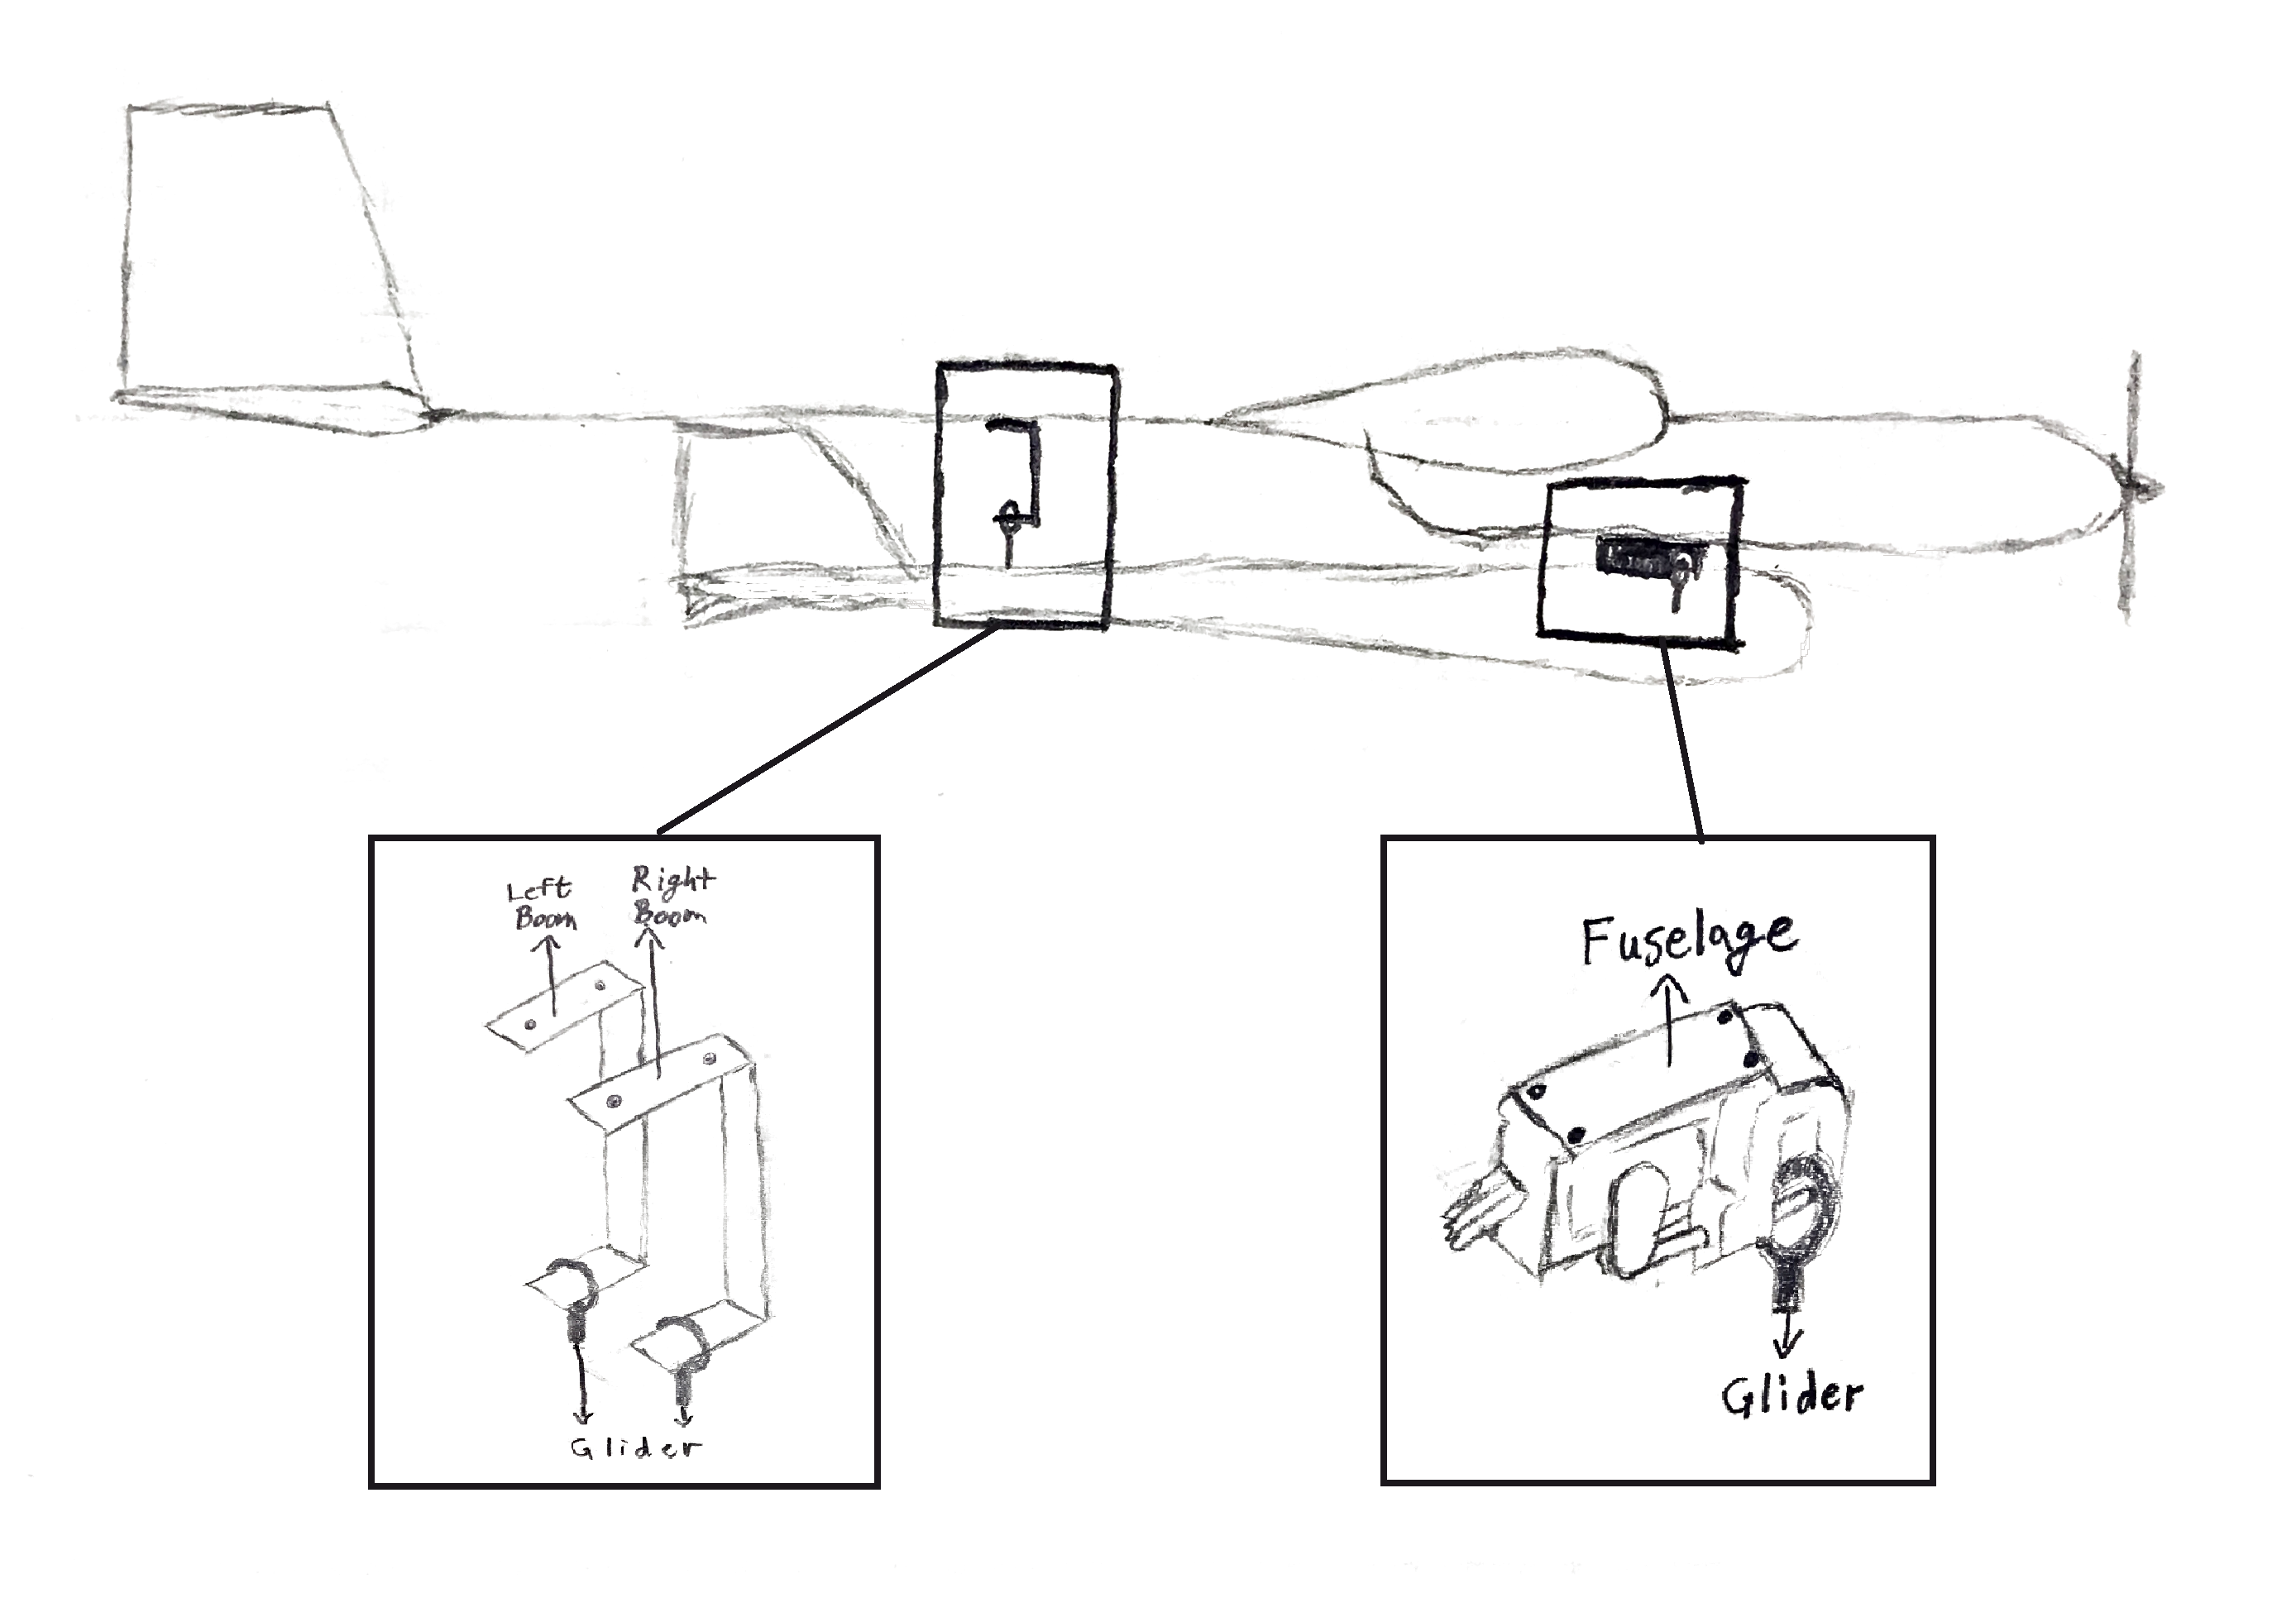 Left
Boom
Right
Boom
Glider
Fuselage
Glider